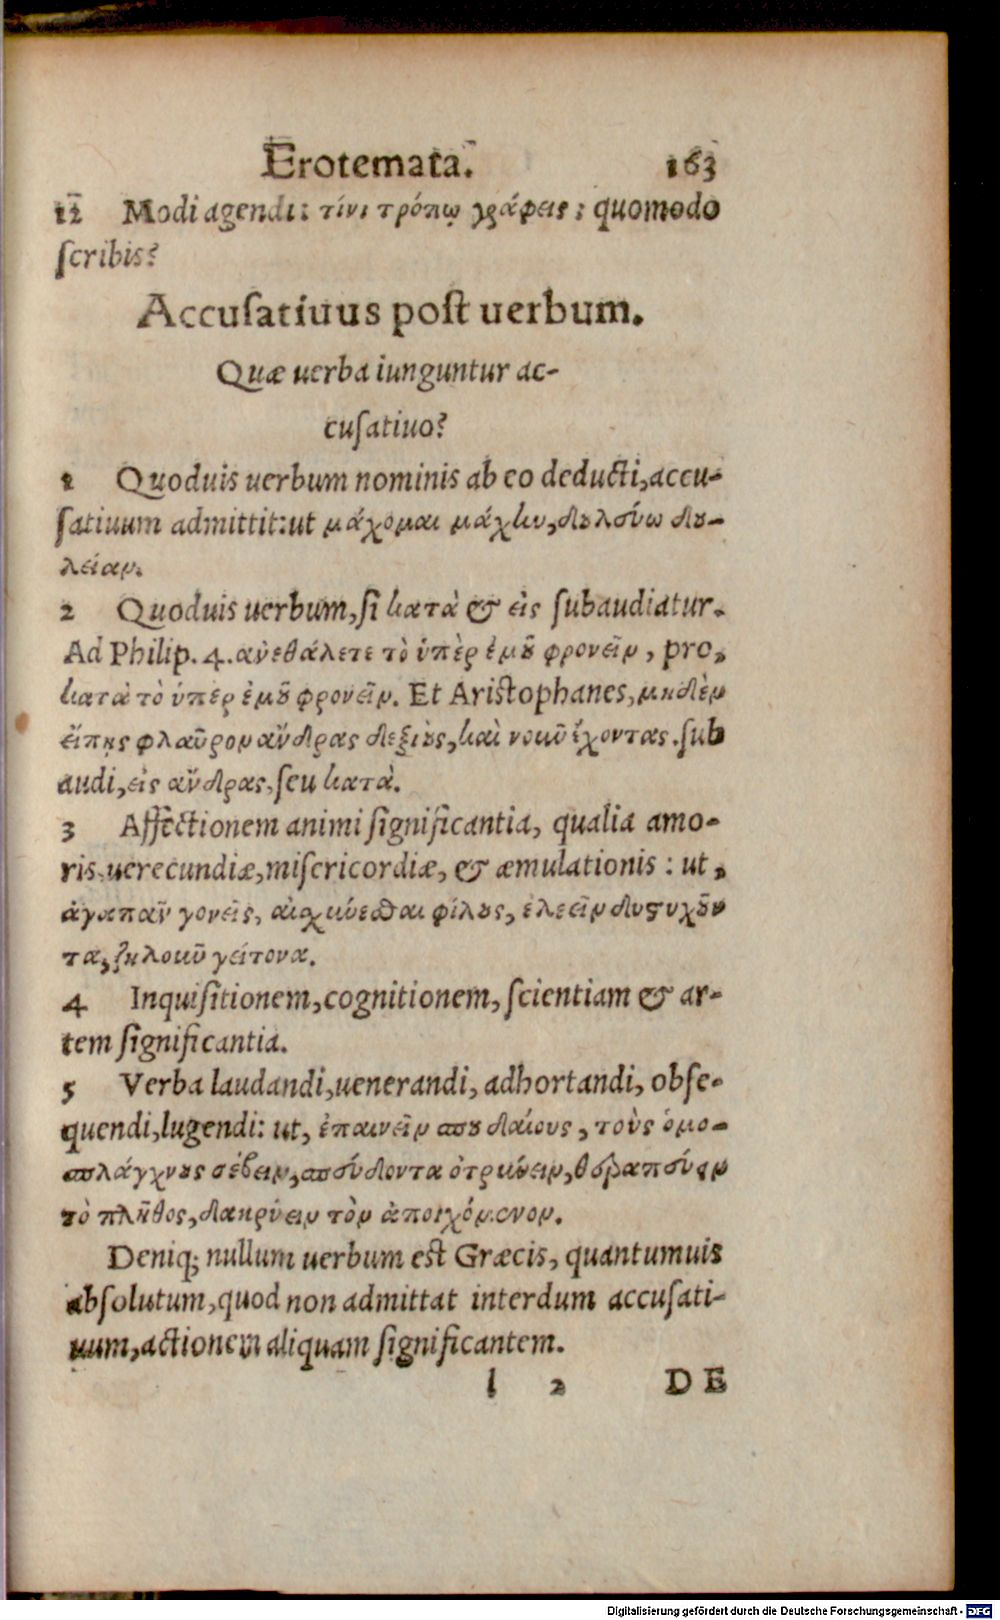 Erotemata. 163
12 Modi agendi: τίνι τρόπῳ γράφεις; quomodo
ſcribis?
Accuſatiuus poſt uerbum.
Quæ uerba iunguntur ac-
cuſatiuo?
1 Quoduis uerbum nominis ab eo deducti, accu-
ſatiuum admittit: ut μάχομαι μάχην, δουλεύω δου-
λείαν.
2 Quoduis uerbum, ſi κατὰ & εἰς ſubaudiatur.
Ad Philip. 4. ἀνεθάλετε τὸ ὑπὲρ ἐμοῦ φρονεῖν, pro,
κατὰ τὸ ὑπὲρ ἐμοῦ φρονεῖν. Et Ariſtophanes, μηδὲν
εἴπῃς φλαῦρον ἄνδρας δεξιοὺς, καὶ νοῦν ἔχοντας. ſub
audi, εἰς ἄνδρας, ſeu κατὰ.
3 Affectionem animi ſignificantia, qualia amo-
ris, uerecundiæ, miſericordiæ, & æmulationis: ut,
ἀγαπᾶν γονεῖς, αἰσχύνεσθαι φίλους, ἐλεεῖν δυστυχοῦν
τα, ζηλοῦν γείτονα.
4 Inquiſitionem, cognitionem, ſcientiam & ar-
tem ſignificantia.
5 Verba laudandi, uenerandi, adhortandi, obſe-
quendi, lugendi: ut, ἐπαινεῖν σπουδαίους, τοὺς ὁμο-
σπλάγχνους σέβειν, σπεύδοντα ὀτρύνειν, θεραπεύειν
τὸ πλῆθος, δακρύειν τὸν ἀποιχόμενον.
Deniq; nullum uerbum eſt Græcis, quantumuis
abſolutum, quod non admittat interdum accuſati-
uum, actionem aliquam ſignificantem.
l 2 DE
Digitalisierung gefördert durch die Deutsche Forschungsgemeinschaft - DFG